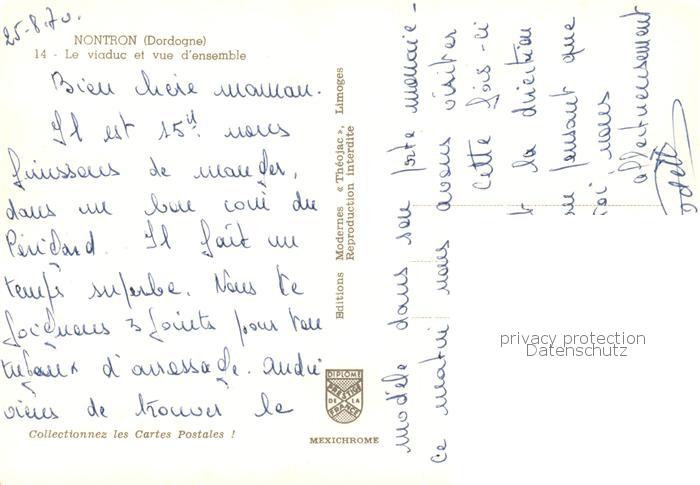 25-8.70.
NONTRON (Dordogne)
14 - Le viaduc et vue d'ensemble
Bien chère maman.
Il est 15H nous
finissons de manger,
dans un bon coin du
Périgord. Il fait un
temps superbe. Nous te
joignons 3 joints pour ton
d'arrosage. André
viens de trouver le
modèle dans son porte monaie -
ce matin nous avons visiter
cette fois-ci
la direction
pensant que
nous
affectueusement
Editions Modernes « Théojac », Limoges
Reproduction Interdite
DIPLOME
PRESTIGE
DE LA
FRANCE
Collectionnez les Cartes Postales !
MEXICHROME
privacy protection
Datenschutz